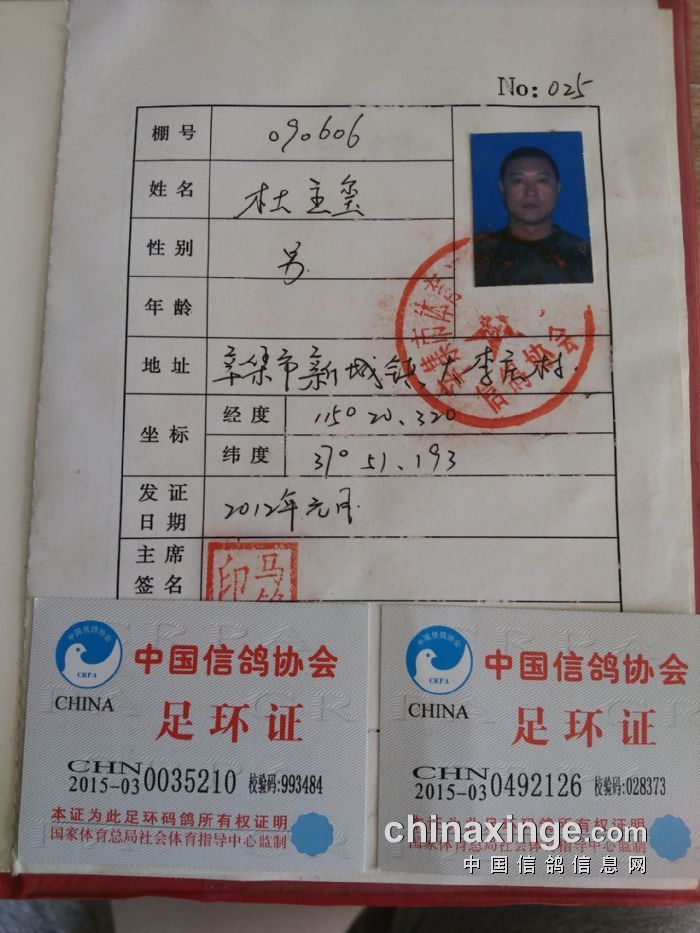 No: 025
棚号 090606
姓名 杜主玺
性别 男
年龄
地址 辛集市新城镇大李庄村.
坐标 经度 115° 20.320
纬度 37° 51.193
发证日期 2012年元月
主席签名
信鸽协会
中国信鸽协会
CRPA
CHINA
中国信鸽协会
足环证
CHN
2015-03 0035210 校验码:993484
本证为此足环码鸽所有权证明
国家体育总局社会体育指导中心监制
中国信鸽协会
CRPA
CHINA
中国信鸽协会
足环证
CHN
2015-03 0492126 校验码:028373
本证为此足环码鸽所有权证明
国家体育总局社会体育指导中心监制
chinaxinge.com
中国信鸽信息网